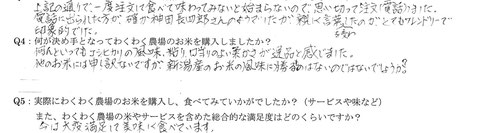 上記の通りで一度注文して食べて味わってみないと始まらないので思い切って注文電話しました。
電話に出られた方が、確か神田長四郎さんのようでしたが頼く言葉でしたがとてもフレンドリーで
印象的でした。
Q4：何が決め手となってわくわく農場のお米を購入しましたか？
何んといってもコシヒカリの風味、粘り切りのよい軟かさが逸品と感じました。
他のお米には申し訳ないですが新潟産のお米の風味に勝るのはないのではないでしょうか？
Q5：実際にわくわく農場のお米を購入し、食べてみていかがでしたか？（サービスや味など）
また、わくわく農場のお米やサービスを含めた総合的な満足度はどのくらいですか？
今は大変満足して美味しく食べています。